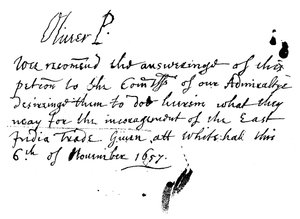 Oliver P.
Wee recomend the answeringe of this
petion to the Com.rs of our Admiraltye
desiringe them to doe herein what they
may for the incoragement of the East
India Trade Given att Whitehal this
6th of November 1657.